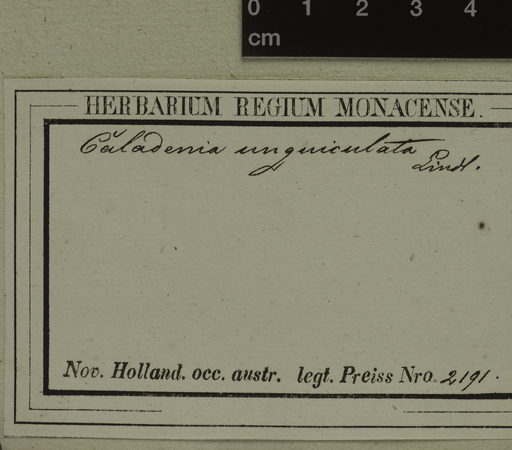 0 1 2 3 4
cm
HERBARIUM REGIUM MONACENSE.
Caladenia unguiculata
Lindl.
Nov. Holland. occ. austr. legt. Preiss Nro. 2191.